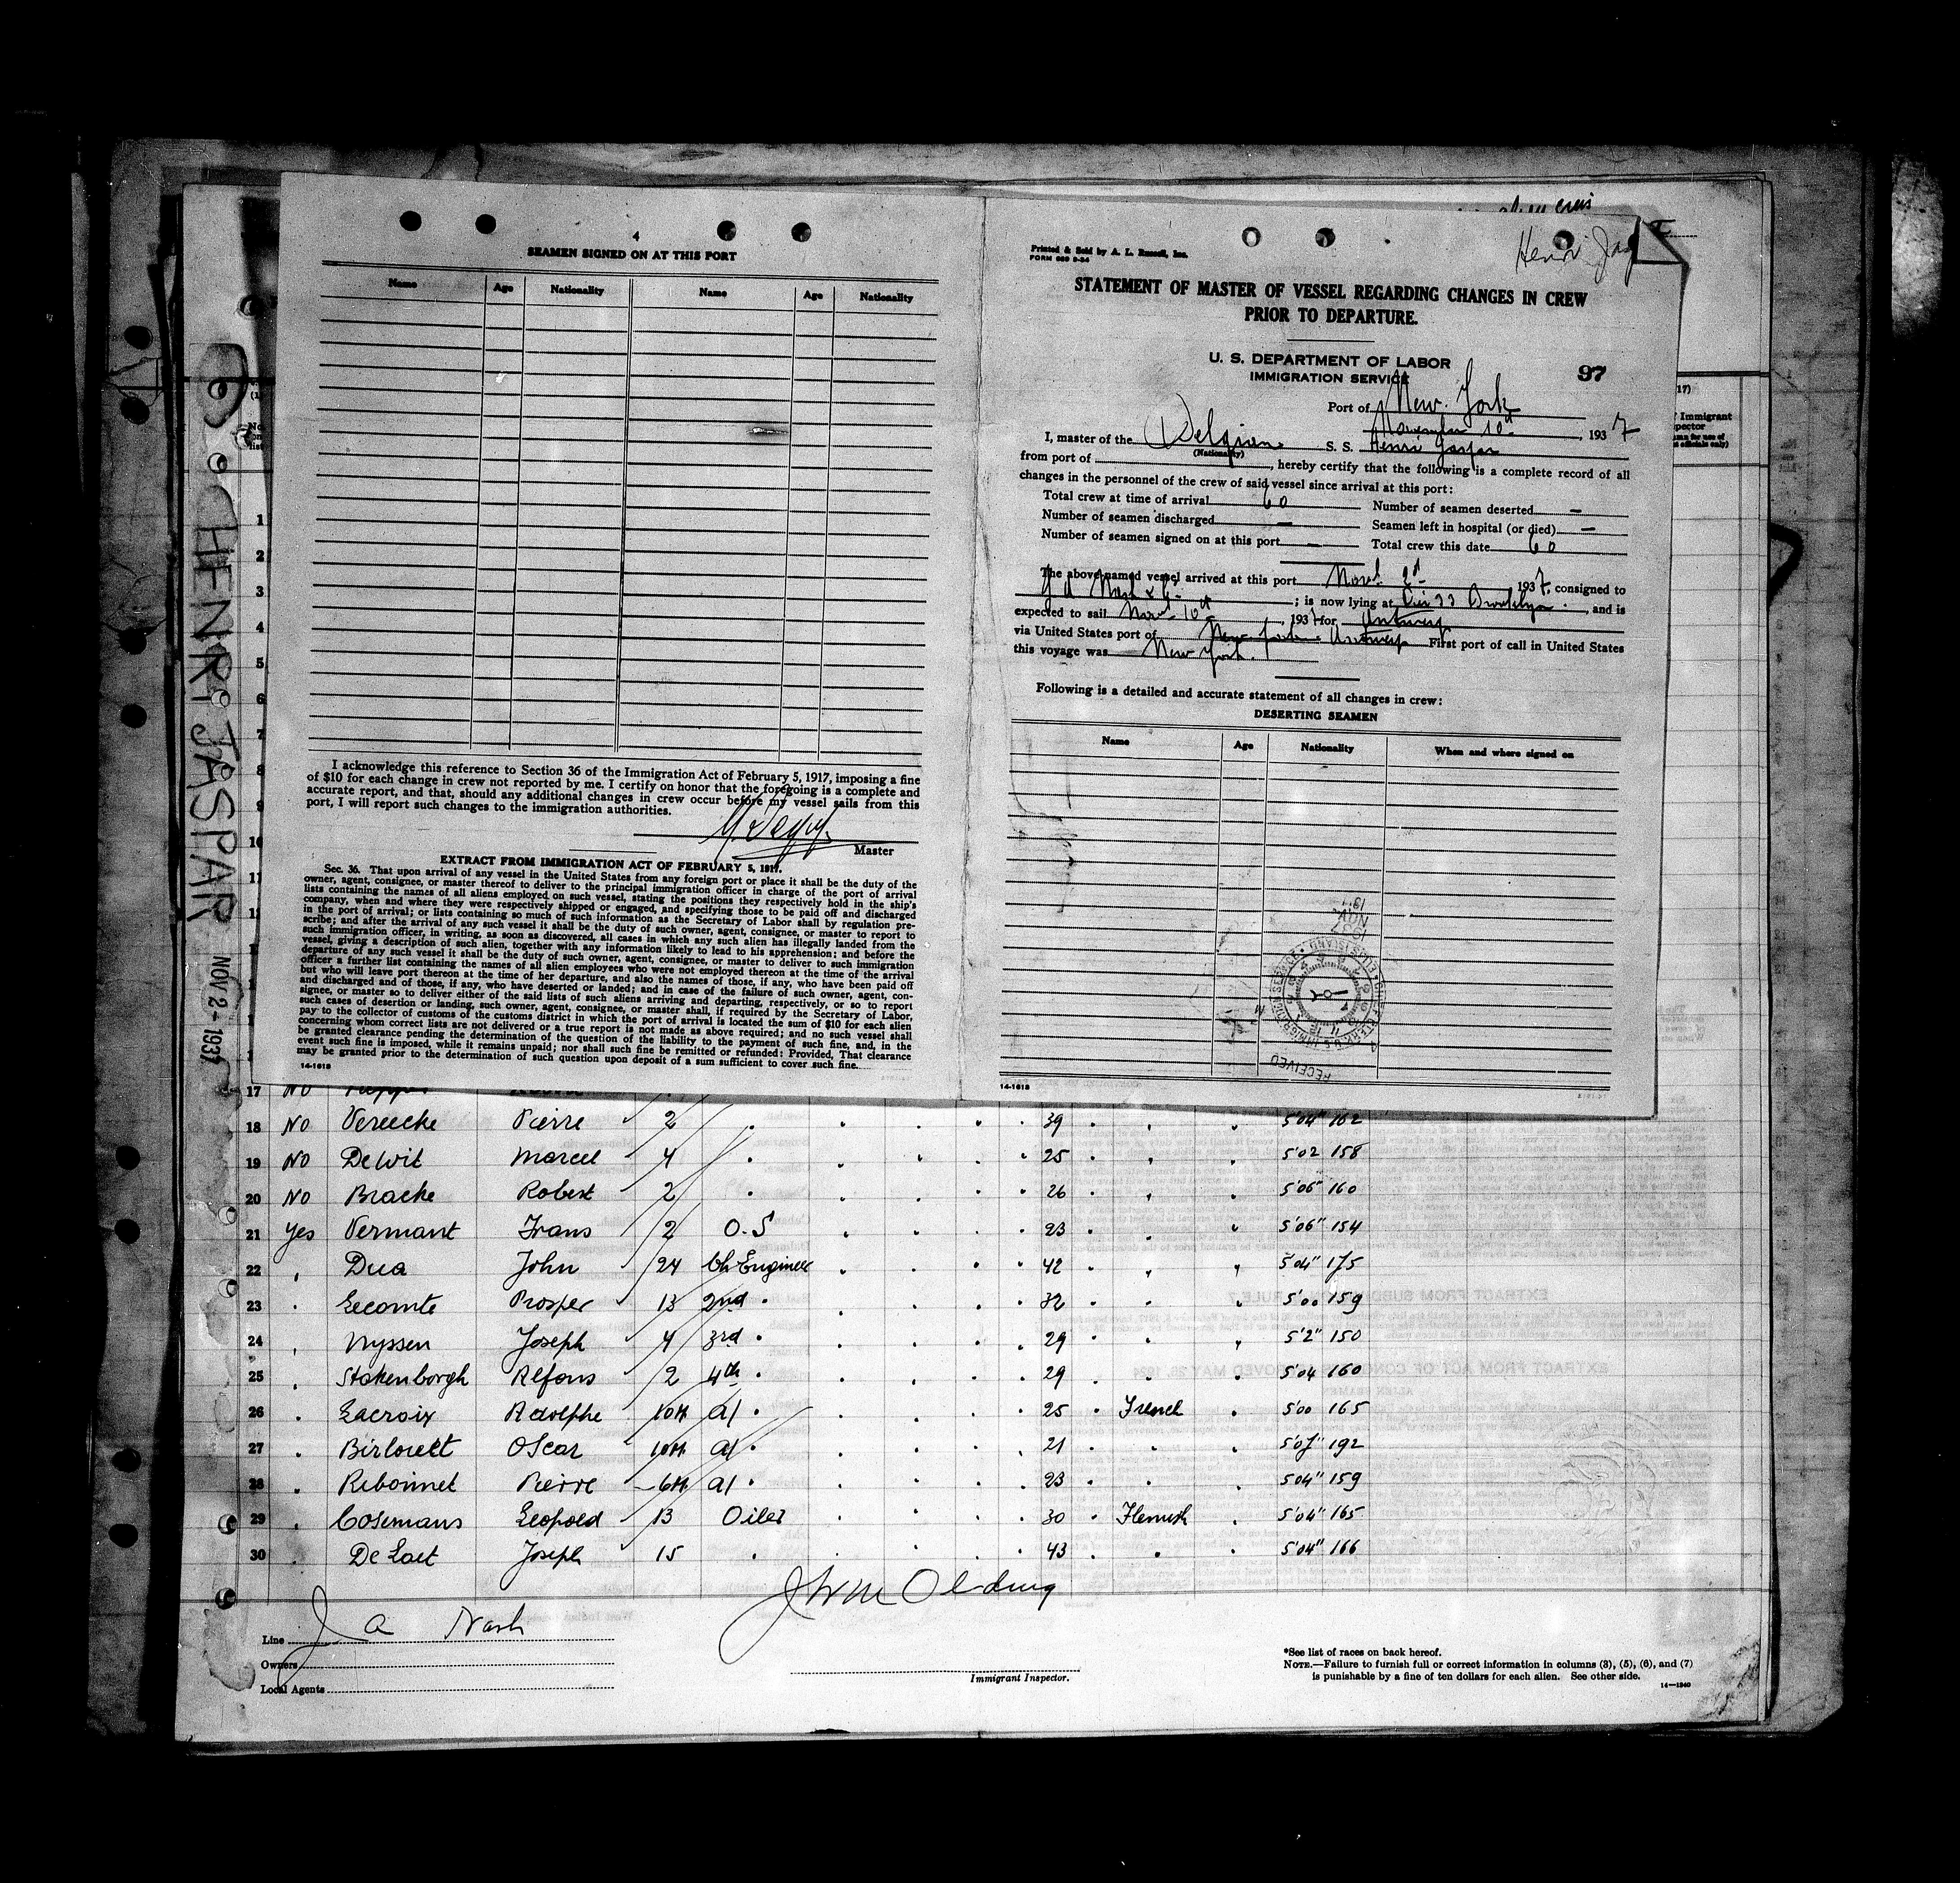 HENRI JASPAR NOV 2 - 1937
4
SEAMEN SIGNED ON AT THIS PORT
Name Age Nationality Name Age Nationality
I acknowledge this reference to Section 36 of the Immigration Act of February 5, 1917, imposing a fine
of $10 for each change in crew not reported by me. I certify on honor that the foregoing is a complete and
accurate report, and that, should any additional changes in crew occur before my vessel sails from this
port, I will report such changes to the immigration authorities.
Master
EXTRACT FROM IMMIGRATION ACT OF FEBRUARY 5, 1917.
Sec. 36. That upon arrival of any vessel in the United States from any foreign port or place it shall be the duty of the
owner, agent, consignee, or master thereof to deliver to the principal immigration officer in charge of the port of arrival
lists containing the names of all aliens employed on such vessel, stating the positions they respectively hold in the ship's
company, when and where they were respectively shipped or engaged, and specifying those to be paid off and discharged
in the port of arrival; or lists containing so much of such information as the Secretary of Labor shall by regulation pre-
scribe; and after the arrival of any such vessel it shall be the duty of such owner, agent, consignee, or master to report to
such immigration officer, in writing, as soon as discovered, all cases in which any such alien has illegally landed from the
vessel, giving a description of such alien, together with any information likely to lead to his apprehension; and before the
departure of any such vessel it shall be the duty of such owner, agent, consignee, or master to deliver to such immigration
officer a further list containing the names of all alien employees who were not employed thereon at the time of the arrival
but who will leave port thereon at the time of her departure, and also the names of those, if any, who have been paid off
and discharged and of those, if any, who have deserted or landed; and in case of the failure of such owner, agent, con-
signee, or master so to deliver either of the said lists of such aliens arriving and departing, respectively, or so to report
such cases of desertion or landing, such owner, agent, consignee, or master, shall, if required by the Secretary of Labor,
pay to the collector of customs of the customs district in which the port of arrival is located the sum of $10 for each alien
concerning whom correct lists are not delivered or a true report is not made as above required; and no such vessel shall
be granted clearance pending the determination of the question of the liability to the payment of such fine, and, in the
event such fine is imposed, while it remains unpaid; nor shall such fine be remitted or refunded: Provided, That clearance
may be granted prior to the determination of such question upon deposit of a sum sufficient to cover such fine.
14-1618
Henri Jas
Printed & Sold by A. L. Russell, Inc.
STATEMENT OF MASTER OF VESSEL REGARDING CHANGES IN CREW
PRIOR TO DEPARTURE.
U. S. DEPARTMENT OF LABOR
IMMIGRATION SERVICE
97
Port of New York
November 10th, 1937
I, master of the Belgian S. S. Henri Jaspar
(Nationality)
from port of , hereby certify that the following is a complete record of all
changes in the personnel of the crew of said vessel since arrival at this port:
Total crew at time of arrival 60 Number of seamen deserted —
Number of seamen discharged — Seamen left in hospital (or died) —
Number of seamen signed on at this port — Total crew this date 60
The above named vessel arrived at this port Nov. 2d 1937, consigned to
J A Nash & Co ; is now lying at Pier 33 Brooklyn, and is
expected to sail Nov. 10th, 1937 for Antwerp
via United States port of New York - Antwerp First port of call in United States
this voyage was New York.
Following is a detailed and accurate statement of all changes in crew:
DESERTING SEAMEN
Name Age Nationality When and where signed on
RECEIVED
14-1618
17 No
18 No Vereecke Pierre 2 39 5'04" 162
19 No DeWit Marcel 4 25 5'02 158
20 No Bracke Robert 2 26 5'06" 160
21 Yes Vermant Frans 2 O.S 23 5'06" 154
22 Dua John 24 Ch Engineer 42 5'04" 175
23 Lecomte Prosper 13 2nd 32 5'00 159
24 Nyssen Joseph 4 3rd 29 5'2" 150
25 Stokenborgh Alfons 2 4th 29 5'04 160
26 Lacroix Adolphe 10M a/ 25 French 5'00 165
27 Oscar 10M a/ 21 5'07" 192
28 Ribonnet Pierre 6M a/ 23 5'04" 159
29 Cosemans Leopold 13 Oiler 30 Flemish 5'04" 165
30 De Laet Joseph 15 43 5'04" 166
Line J A Nash
Owners
Local Agents
Immigrant Inspector.
*See list of races on back hereof.
NOTE.—Failure to furnish full or correct information in columns (3), (5), (6), and (7)
is punishable by a fine of ten dollars for each alien. See other side.
14—1240